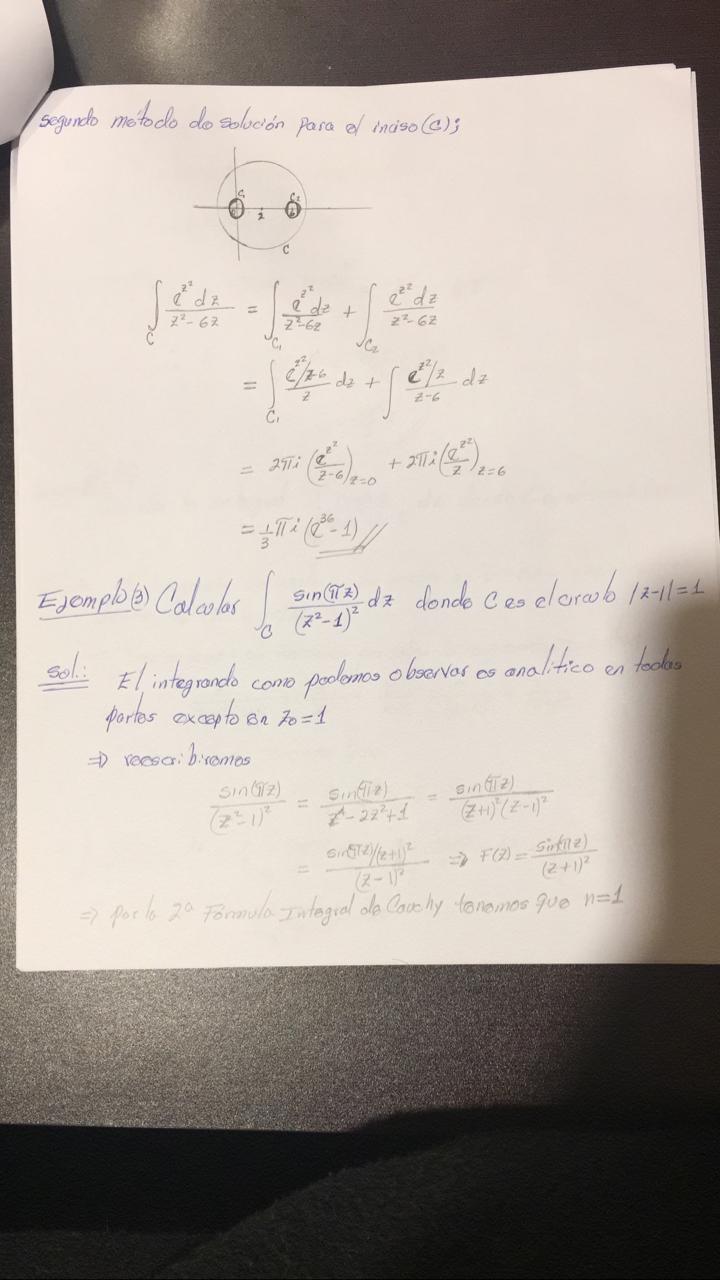 segundo método de solución para el inciso (c);
C₁ C₂
2
C
∫_C e^{z²} dz / (z²-6z) = ∫_{C₁} e^{z²} dz / (z²-6z) + ∫_{C₂} e^{z²} dz / (z²-6z)
= ∫_{C₁} (e^{z²}/z-6) / z dz + ∫ (e^{z²}/z) / (z-6) dz
= 2πi (e^{z²} / (z-6))_{z=0} + 2πi (e^{z²} / z)_{z=6}
= 1/3 πi (e^{36} - 1)
Ejemplo(3) Calcular ∫_C sin(πz) / (z²-1)² dz donde C es el circulo |z-1|=1
Sol.: El integrando como podemos observar es analitico en todas
partes excepto en z₀=1
⇒ reescribiremos
sin(πz) / (z²-1)² = sin(πz) / (z⁴-2z²+1) = sin(πz) / (z+1)²(z-1)²
= (sin(πz)/(z+1)²) / (z-1)² ⇒ F(z) = sin(πz) / (z+1)²
⇒ por la 2ª Fórmula Integral de Cauchy tenemos que n=1